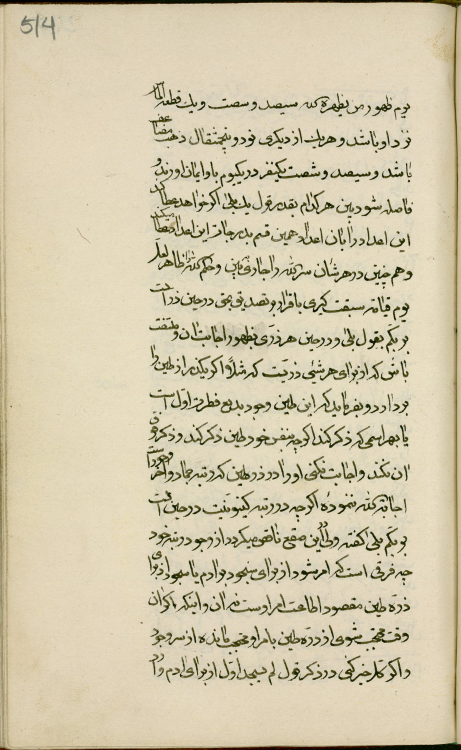 514
یوم ظهور من یظهره الله سیصد و شصت و یک قطعه الماس
نزد او باشد و هر یک از دیگری فزود و پنج مثقال ذهب مضاعف
باشد و سیصد و شصت یکنفر در یکیوم باو ایمان آورند و
فاصله شود بین هر کدام بقدر قول بلی اگر خواهد عطا کند
این اعداد را بآن اعداد همین قسم بدء جاز این اعداد عطا میکند
و هم چنین در هر شأن سر الله را جاری بین و حکم الله را ظاهر
یوم قیامة سبقت گیری باقرار و تصدیق یعنی در حین ذر
بربکم بقول بلی و در حین هر ذری بظهور اجابت آن و ملتفت
باش که از برای هر شیئ ذریت که مثلا اگر یکذره از طین را
بردارد و بفرماید که این طین وجود بدیع فطرت اول است
یا بهر اسمی که ذکر کند اگر چه بنفس خود طین ذکر کند و ذکر فوق
آن نکند و اجابت نکنی او را در ذر طین که رتبه جماد و آخر وجود است
اجابة الله ننموده اگر چه در رتبه کینونیت در حین الست
بربکم بلی گفته ولی در این صقع ناقص میگردد از وجود رتبه خود
چه فرق است که امر شود از برای سجود بر آدم یا سجود از برای
ذره طین مقصود اطاعت امر اوست نه آن و اینکه اگر آن
وقت محتجب شوی از ذره طین بامر او محتجب مانده از سر وجود
و اگر تکبر کنی در ذکر قول لم یسجد اول از برای آدم وارد